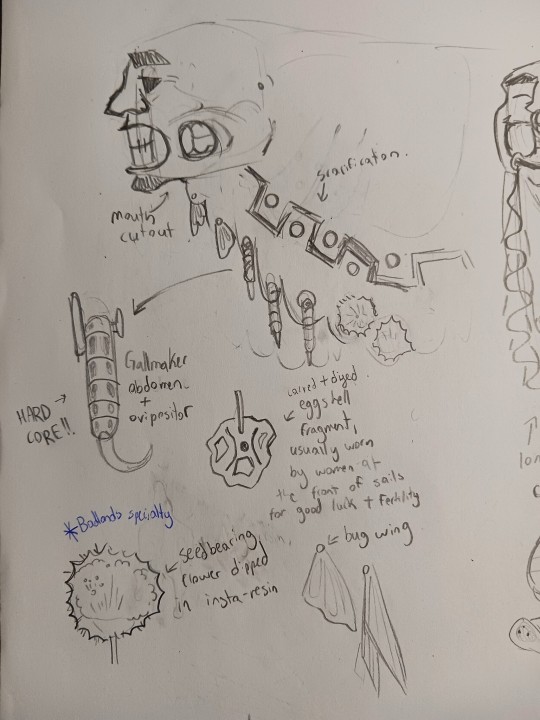 scarification.
mouth
cutout
Gallmaker
abdomen
+
ovipositor
HARD
CORE!!
carved + dyed
eggshell
fragment,
usually worn
by women at
the front of sails
for good luck + fertility
*Badlands specialty
seedbearing
flower dipped
in insta-resin
bug wing